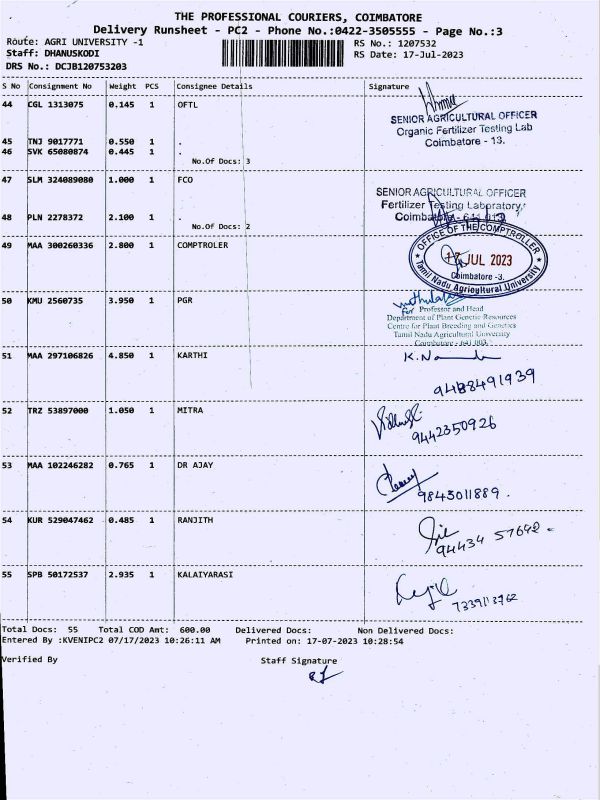 THE PROFESSIONAL COURIERS, COIMBATORE
Delivery Runsheet - PC2 - Phone No.:0422-3505555 - Page No.:3
Route: AGRI UNIVERSITY -1
RS No.: 1207532
Staff: DHANUSKODI
RS Date: 17-Jul-2023
DRS No.: DCJB120753203
S No Consignment No Weight PCS Consignee Details Signature
44 CGL 1313075 0.145 1 OFTL
SENIOR AGRICULTURAL OFFICER
Organic Fertilizer Testing Lab
Coimbatore - 13.
45 TNJ 9017771 0.550 1 .
46 SVK 65080874 0.445 1 .
No.Of Docs: 3
47 SLM 324089080 1.000 1 FCO
SENIOR AGRICULTURAL OFFICER
Fertilizer Testing Laboratory,
Coimbatore - 641 013
48 PLN 2278372 2.100 1 .
No.Of Docs: 2
49 MAA 300260336 2.800 1 COMPTROLER
OFFICE OF THE COMPTROLLER
17 JUL 2023
Coimbatore -3.
Tamil Nadu Agricultural University
50 KMU 2560735 3.950 1 PGR
for Professor and Head
Department of Plant Genetic Resources
Centre for Plant Breeding and Genetics
Tamil Nadu Agricultural University
Coimbatore - 641 003.
51 MAA 297106826 4.850 1 KARTHI
9488491939
52 TRZ 53897000 1.050 1 MITRA
9442350926
53 MAA 102246282 0.765 1 DR AJAY
9843011889.
54 KUR 529047462 0.485 1 RANJITH
94434 57692
55 SPB 50172537 2.935 1 KALAIYARASI
7339113762
Total Docs: 55 Total COD Amt: 600.00 Delivered Docs: Non Delivered Docs:
Entered By :KVENIPC2 07/17/2023 10:26:11 AM Printed on: 17-07-2023 10:28:54
Verified By Staff Signature